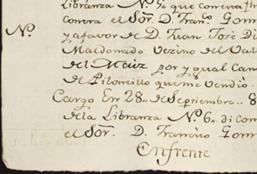 Libranza N.º 5,, que con esta fha
contra el Sor. D. Franco. Gom
N.º
y afavor de D. Juan José Di
Maldonado Vezino del Val
del Maiz por y qual Can
de Piloncillo que me Vendió
Cargo En 28,, de Septiembre.. 8
de la Libranza N.º 6,, di con
el Sor. D. Francisco Gom
Enfrente